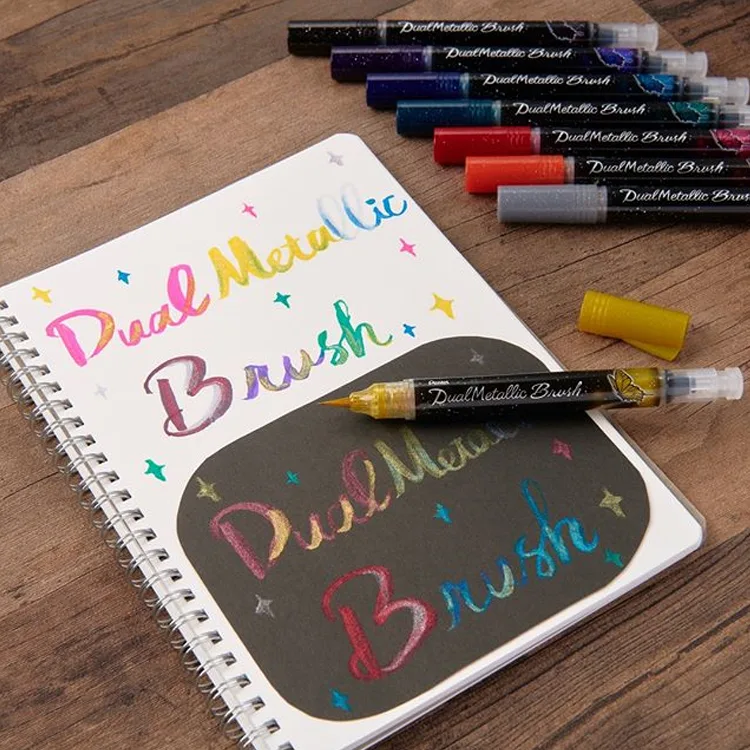 DualMetallic Brush
DualMetallic Brush
DualMetallic Brush
DualMetallic Brush
DualMetallic Brush
DualMetallic Brush
DualMetallic Brush
Dual Metallic
Brush
Pentel DualMetallic Brush
Dual Metallic
Brush